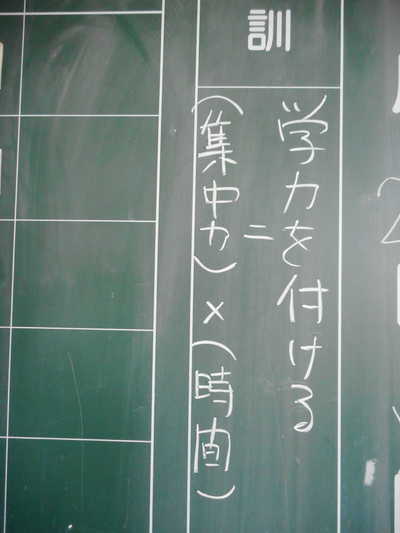 訓
学力を付ける
＝
(集中力)×(時間)